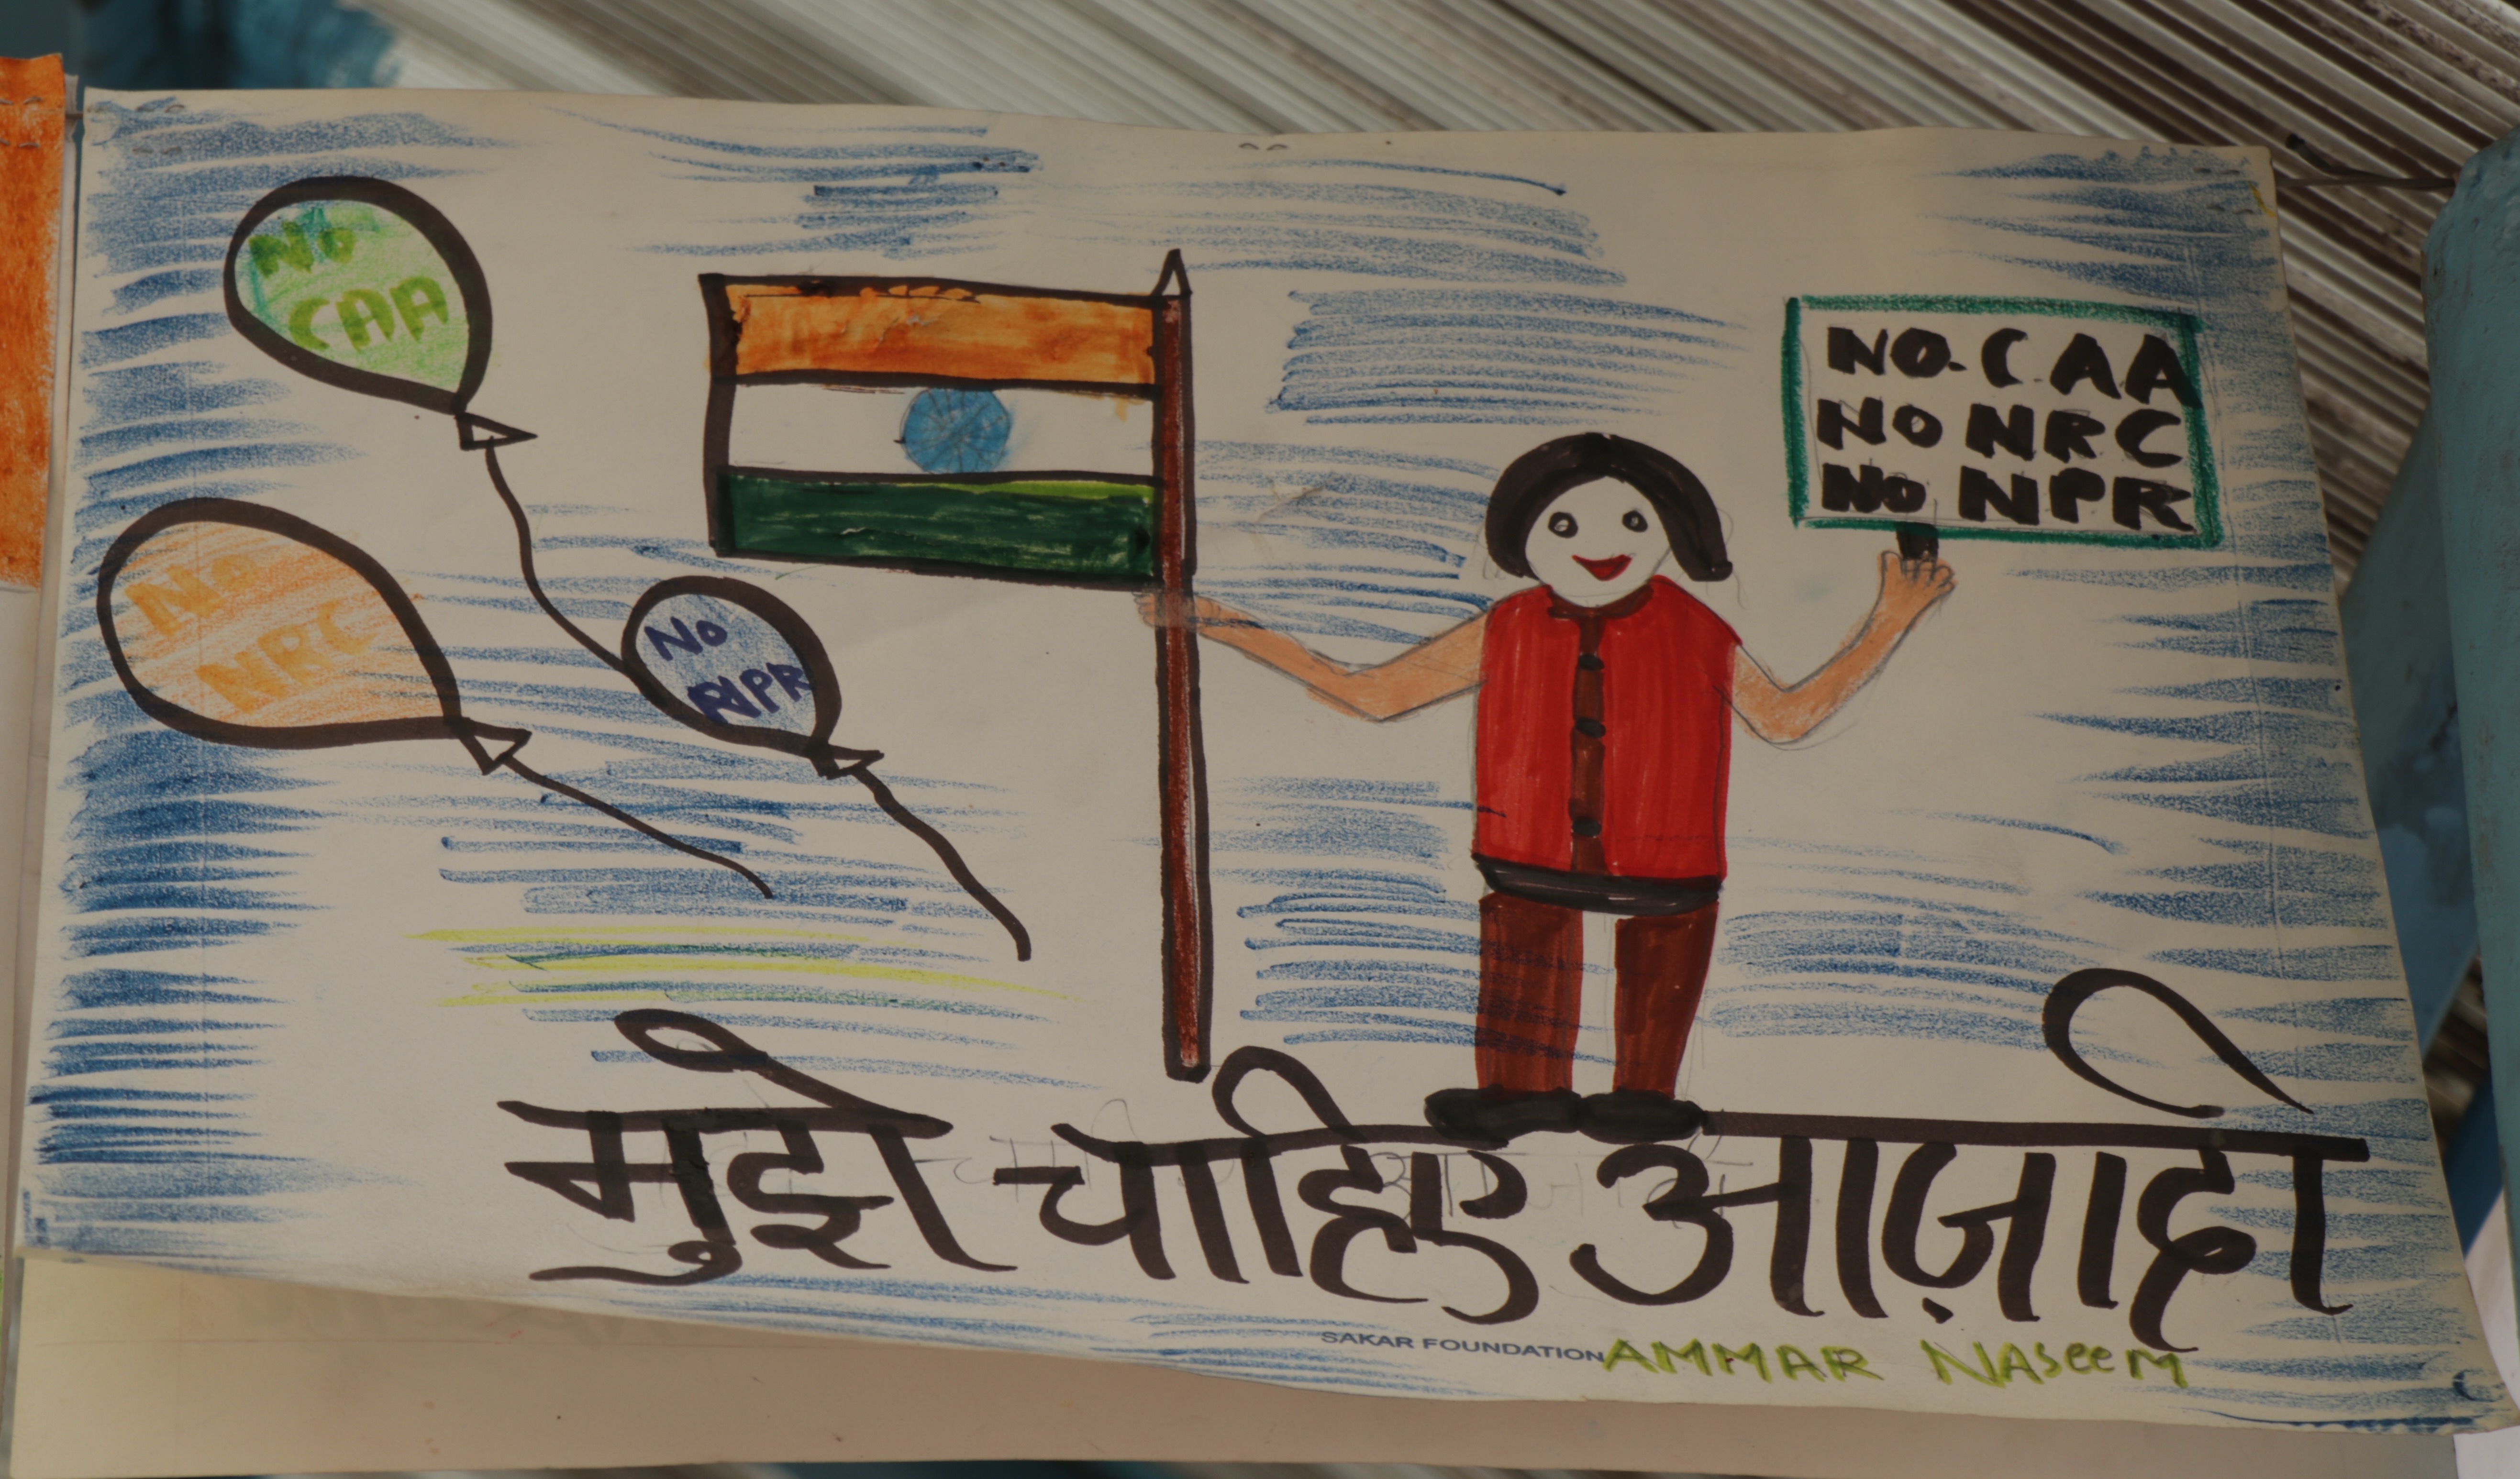 No
CAA
No
NRC
No
NPR
NO.C.AA
NO NRC
No NPR
मुझे चाहिए आज़ादी
SAKAR FOUNDATION
AMMAR NASeeM